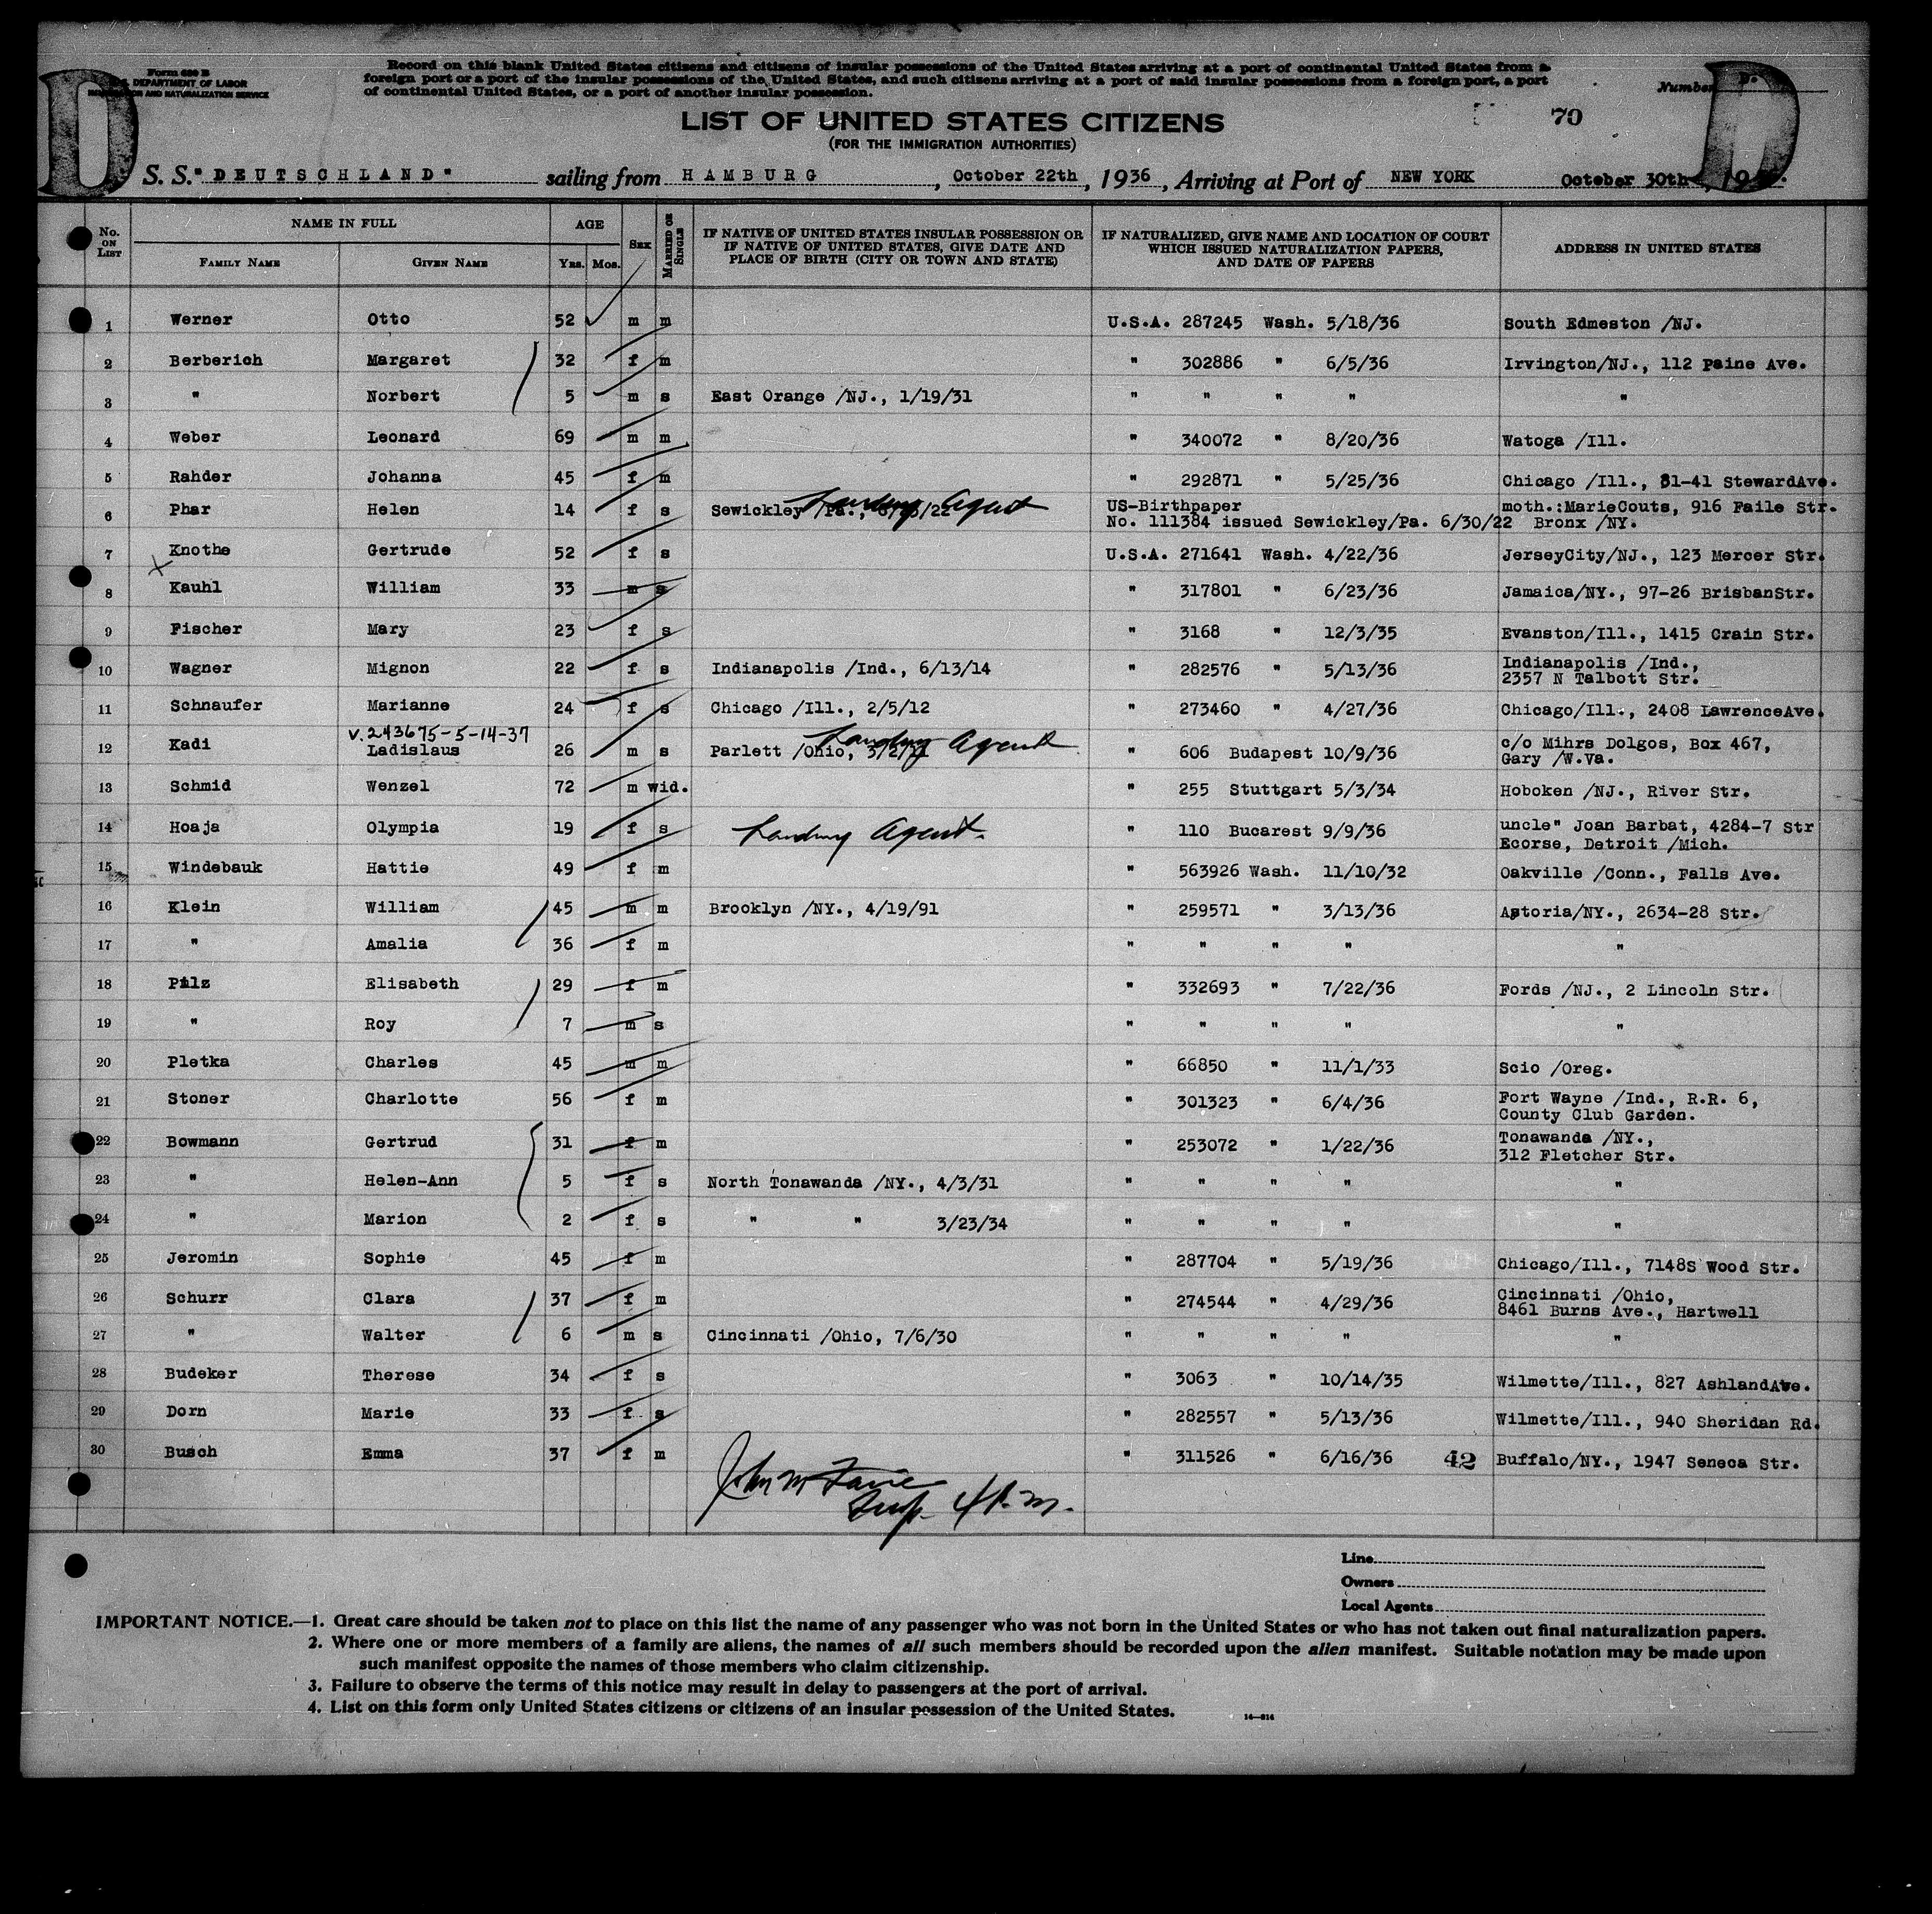 Form 630 B
U.S. DEPARTMENT OF LABOR
IMMIGRATION AND NATURALIZATION SERVICE
Record on this blank United States citizens and citizens of insular possessions of the United States arriving at a port of continental United States from a
foreign port or a port of the insular possessions of the United States, and such citizens arriving at a port of said insular possessions from a foreign port, a port
of continental United States, or a port of another insular possession.
Number
D
D
LIST OF UNITED STATES CITIZENS
70
(FOR THE IMMIGRATION AUTHORITIES)
S. S. "DEUTSCHLAND" sailing from HAMBURG, October 22th, 1936, Arriving at Port of NEW YORK October 30th, 19
No. ON LIST NAME IN FULL FAMILY NAME GIVEN NAME AGE Yrs. Mos. Sex MARRIED OR SINGLE IF NATIVE OF UNITED STATES INSULAR POSSESSION OR IF NATIVE OF UNITED STATES, GIVE DATE AND PLACE OF BIRTH (CITY OR TOWN AND STATE) IF NATURALIZED, GIVE NAME AND LOCATION OF COURT WHICH ISSUED NATURALIZATION PAPERS, AND DATE OF PAPERS ADDRESS IN UNITED STATES
1 Werner Otto 52 m m U.S.A. 287245 Wash. 5/18/36 South Edmeston /NJ.
2 Berberich Margaret 32 f m " 302886 " 6/5/36 Irvington/NJ., 112 Paine Ave.
3 " Norbert 5 m s East Orange /NJ., 1/19/31 " " " " "
4 Weber Leonard 69 m m " 340072 " 8/20/36 Watoga /Ill.
5 Rahder Johanna 45 f m " 292871 " 5/25/36 Chicago /Ill., 81-41 StewardAve.
6 Phar Helen 14 f s Sewickley /Pa., Landing Agent US-Birthpaper moth.:MarieCouts, 916 Faile Str.
No. 111384 issued Sewickley/Pa. 6/30/22 Bronx /NY.
7 Knothe Gertrude 52 f s U.S.A. 271641 Wash. 4/22/36 JerseyCity/NJ., 123 Mercer Str.
8 Kauhl William 33 m s " 317801 " 6/23/36 Jamaica/NY., 97-26 BrisbanStr.
9 Fischer Mary 23 f s " 3168 " 12/3/35 Evanston/Ill., 1415 Crain Str.
10 Wagner Mignon 22 f s Indianapolis /Ind., 6/13/14 " 282576 " 5/13/36 Indianapolis /Ind.,
2357 N Talbott Str.
11 Schnaufer Marianne 24 f s Chicago /Ill., 2/5/12 " 273460 " 4/27/36 Chicago/Ill., 2408 LawrenceAve.
V. 243675-5-14-37
12 Kadi Ladislaus 26 m s Parlett /Ohio, Landing Agent " 606 Budapest 10/9/36 c/o Mihrs Dolgos, Box 467,
Gary /W.Va.
13 Schmid Wenzel 72 m wid. " 255 Stuttgart 5/3/34 Hoboken /NJ., River Str.
14 Hoaja Olympia 19 f s Landing Agent. " 110 Bucarest 9/9/36 uncle" Joan Barbat, 4284-7 Str
Ecorse, Detroit /Mich.
15 Windebauk Hattie 49 f m " 563926 Wash. 11/10/32 Oakville /Conn., Falls Ave.
16 Klein William 45 m m Brooklyn /NY., 4/19/91 " 259571 " 3/13/36 Astoria/NY., 2634-28 Str.
17 " Amalia 36 f m " " " " "
18 Pilz Elisabeth 29 f m " 332693 " 7/22/36 Fords /NJ., 2 Lincoln Str.
19 " Roy 7 m s " " " " "
20 Pletka Charles 45 m m " 66850 " 11/1/33 Scio /Oreg.
21 Stoner Charlotte 56 f m " 301323 " 6/4/36 Fort Wayne /Ind., R.R. 6,
County Club Garden.
22 Bowmann Gertrud 31 f m " 253072 " 1/22/36 Tonawanda /NY.,
312 Fletcher Str.
23 " Helen-Ann 5 f s North Tonawanda /NY., 4/3/31 " " " " "
24 " Marion 2 f s " " 3/23/34 " " " " "
25 Jeromin Sophie 45 f m " 287704 " 5/19/36 Chicago/Ill., 7148S Wood Str.
26 Schurr Clara 37 f m " 274544 " 4/29/36 Cincinnati /Ohio,
8461 Burns Ave., Hartwell
27 " Walter 6 m s Cincinnati /Ohio, 7/6/30 " " " " "
28 Budeker Therese 34 f s " 3063 " 10/14/35 Wilmette/Ill., 827 AshlandAve.
29 Dorn Marie 33 f s " 282557 " 5/13/36 Wilmette/Ill., 940 Sheridan Rd.
30 Busch Emma 37 f m " 311526 " 6/16/36 42 Buffalo/NY., 1947 Seneca Str.
John M
Insp.
Line
Owners
Local Agents
IMPORTANT NOTICE.—1. Great care should be taken not to place on this list the name of any passenger who was not born in the United States or who has not taken out final naturalization papers.
2. Where one or more members of a family are aliens, the names of all such members should be recorded upon the alien manifest. Suitable notation may be made upon
such manifest opposite the names of those members who claim citizenship.
3. Failure to observe the terms of this notice may result in delay to passengers at the port of arrival.
4. List on this form only United States citizens or citizens of an insular possession of the United States.
14—814